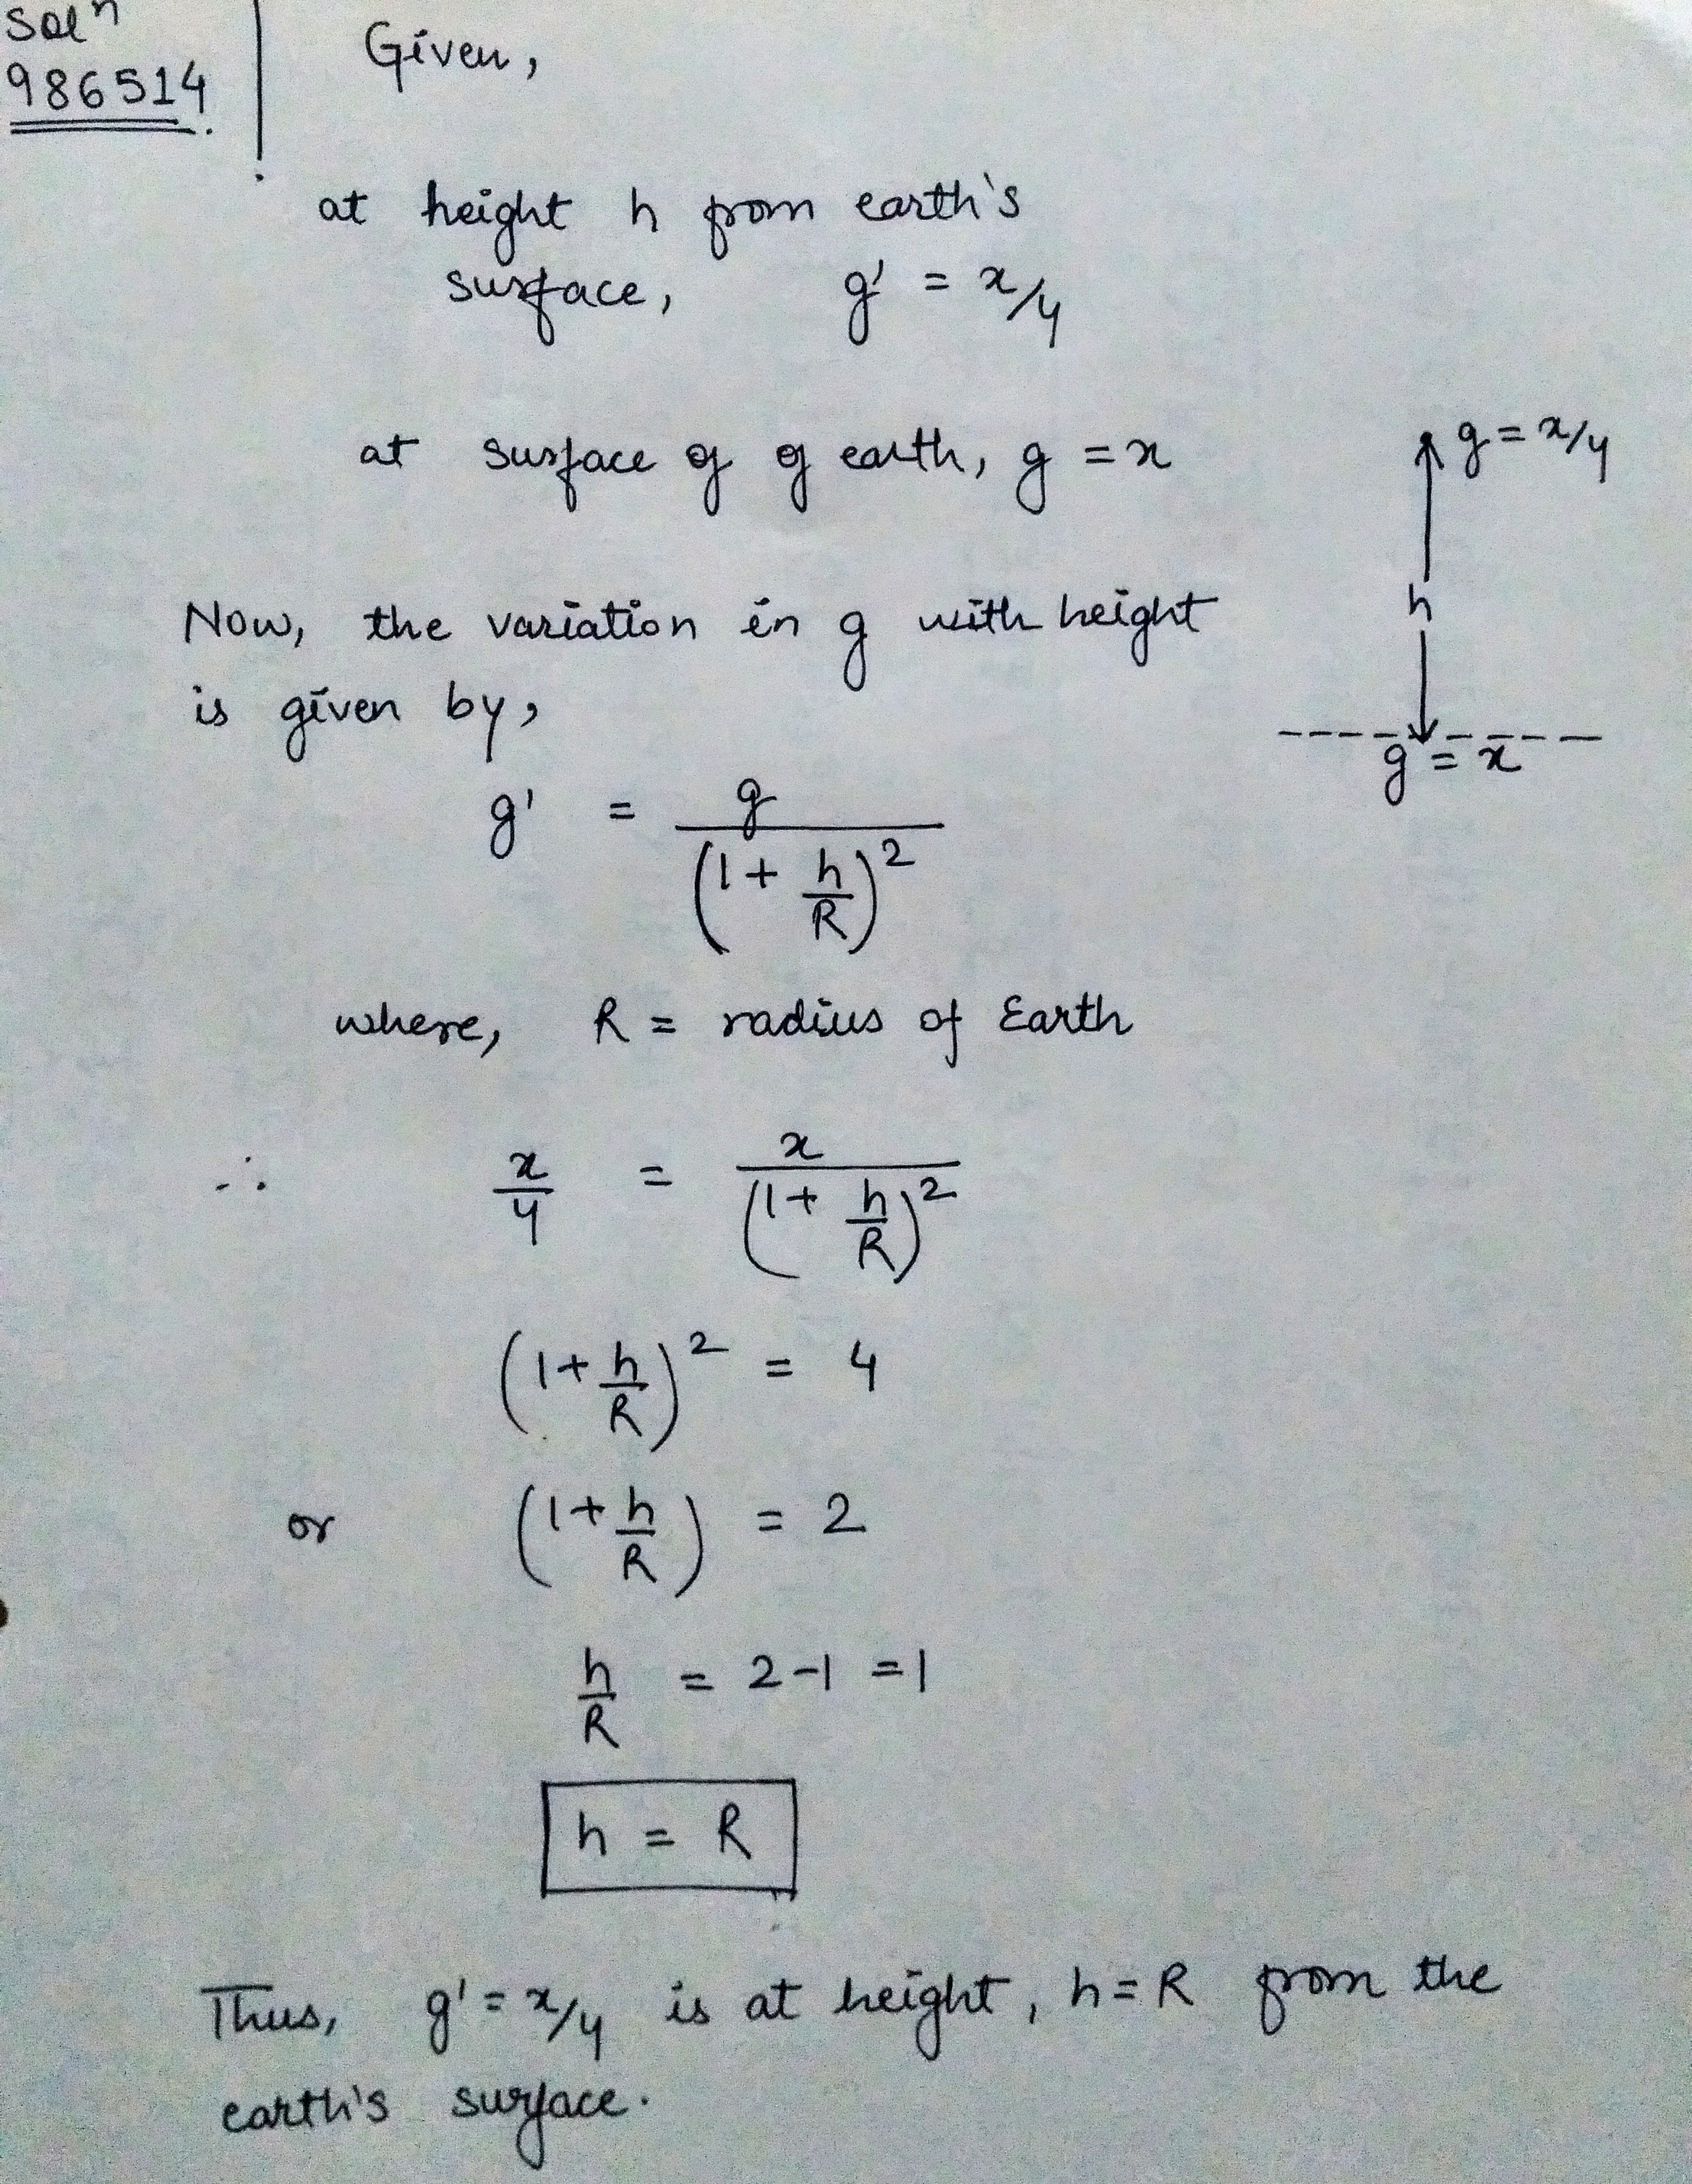 Solⁿ
986514.
Given,
at height h from earth's
surface, g' = x/4
at surface of of earth, g = x
g = x/4
h
g = x
Now, the variation in g with height
is given by,
g' = g / (1 + h/R)²
where, R = radius of Earth
∴ x/4 = x / (1 + h/R)²
(1 + h/R)² = 4
or (1 + h/R) = 2
h/R = 2-1 = 1
h = R
Thus, g' = x/4 is at height, h = R from the
earth's surface.